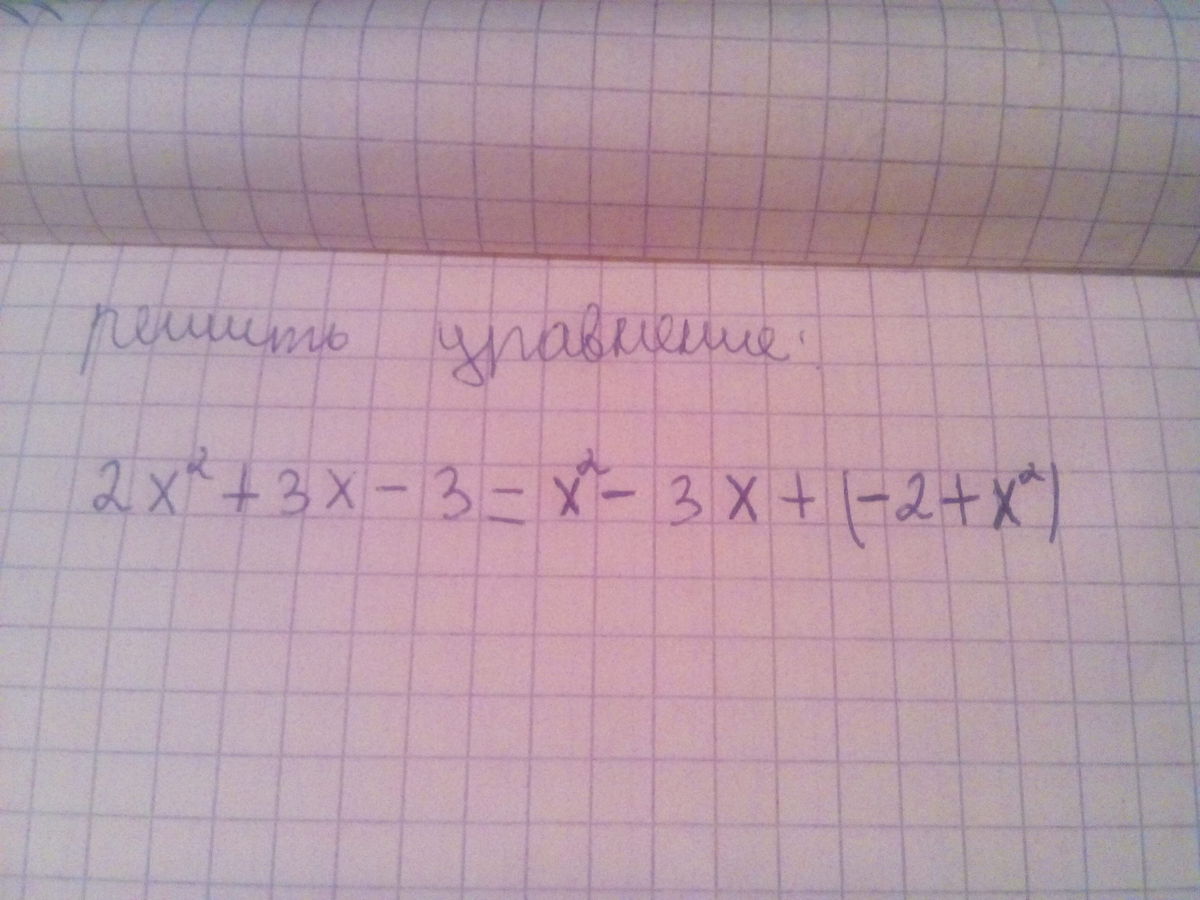 решить уравнение:
2x² + 3x - 3 = x² - 3x + (-2 + x²)